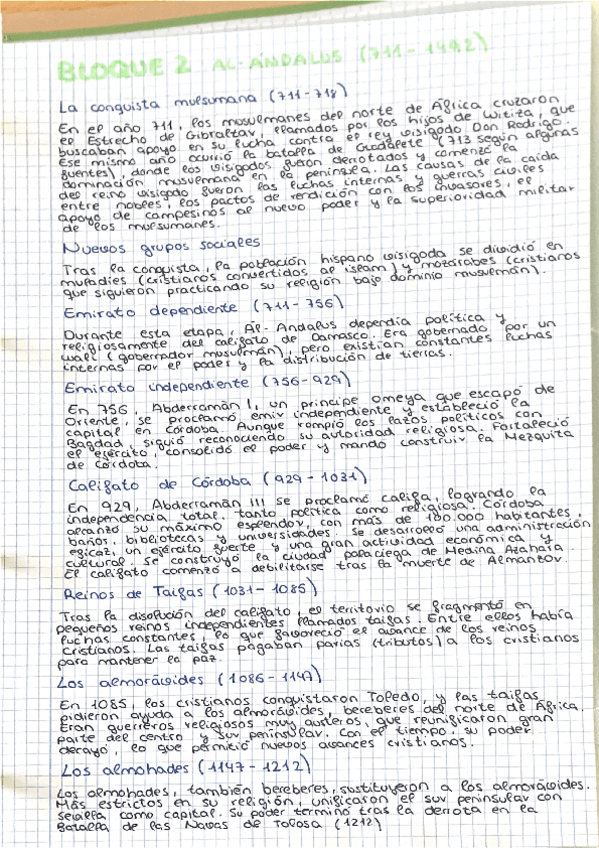 BLOQUE 2 AL-ÁNDALUS (711-1492)
La conquista musulmana (711-718)
En el año 711, los musulmanes del norte de África cruzaron
el Estrecho de Gibraltar, llamados por los hijos de Witiza, que
buscaban apoyo en su lucha contra el rey visigodo Don Rodrigo.
Ese mismo año ocurrió la batalla de Guadalete (713 según algunas
fuentes), donde los visigodos fueron derrotados y comenzó la
dominación musulmana en la península. Las causas de la caída
del reino visigodo fueron las luchas internas y guerras civiles
entre nobles, los pactos de rendición con los invasores, el
apoyo de campesinos al nuevo poder y la superioridad militar
de los musulmanes.
Nuevos grupos sociales
Tras la conquista, la población hispano visigoda se dividió en
muladíes (cristianos convertidos al islam) y mozárabes (cristianos
que siguieron practicando su religión bajo dominio musulmán).
Emirato dependiente (711-756)
Durante esta etapa, Al-Andalus dependía política y
religiosamente del califato de Damasco. Era gobernado por un
walí (gobernador musulmán), pero existían constantes luchas
internas por el poder y la distribución de tierras.
Emirato independiente (756-929)
En 756, Abderramán I, un príncipe Omeya que escapó de
Oriente, se proclamó emir independiente y estableció la
capital en Córdoba. Aunque rompió los lazos políticos con
Bagdad, siguió reconociendo su autoridad religiosa. Fortaleció
el ejército, consolidó el poder y mandó construir la Mezquita
de Córdoba.
Califato de Córdoba (929-1031)
En 929, Abderramán III se proclamó califa, logrando la
independencia total, tanto política como religiosa. Córdoba
alcanzó su máximo esplendor, con más de 100.000 habitantes,
baños, bibliotecas y universidades. Se desarrolló una administración
eficaz, un ejército fuerte y una gran actividad económica y
cultural. Se construyó la ciudad palaciega de Medina Azahara.
El califato comenzó a debilitarse tras la muerte de Almanzor.
Reinos de Taifas (1031-1085)
Tras la disolución del califato, el territorio se fragmentó en
pequeños reinos independientes llamados taifas. Entre ellos había
luchas constantes, lo que favoreció el avance de los reinos
cristianos. Las taifas pagaban parias (tributos) a los cristianos
para mantener la paz.
Los almorávides (1086-1147)
En 1085, los cristianos conquistaron Toledo, y las taifas
pidieron ayuda a los almorávides, bereberes del norte de África.
Eran guerreros religiosos muy austeros, que reunificaron gran
parte del centro y sur peninsular. Con el tiempo, su poder
decayó, lo que permitió nuevos avances cristianos.
Los almohades (1147-1212)
Los almohades, también bereberes, sustituyeron a los almorávides.
Más estrictos en su religión, unificaron el sur peninsular con
Sevilla como capital. Su poder terminó tras la derrota en la
Batalla de las Navas de Tolosa (1212)